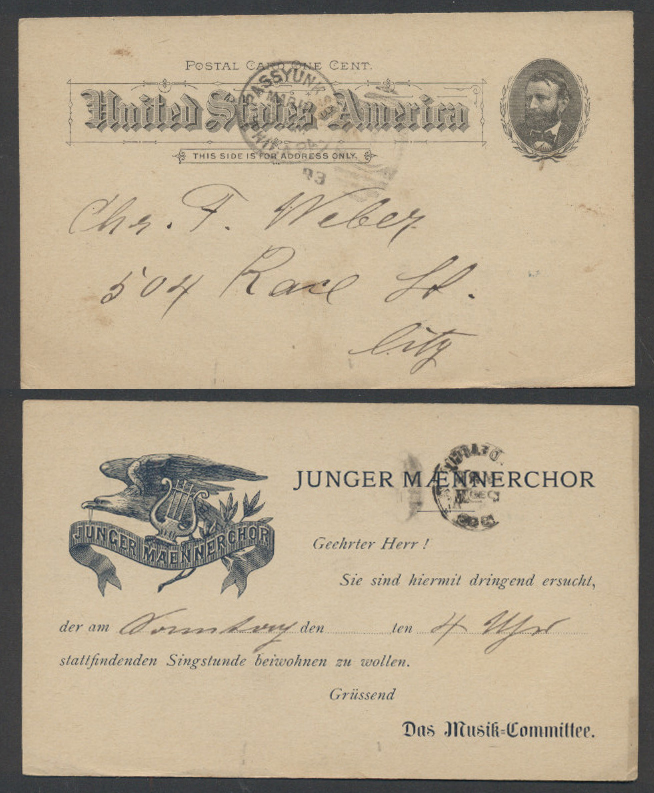 POSTAL CARD ONE CENT.
United States of America
THIS SIDE IS FOR ADDRESS ONLY.
PASSYUNK
PHILA PA
93
Chr. F. Weber
504 Race St.
City
JUNGER MÆNNERCHOR
JUNGER MAENNERCHOR
Geehrter Herr!
Sie sind hiermit dringend ersucht,
der am Sonntag den ten 4 Uhr
stattfindenden Singstunde beiwohnen zu wollen.
Grüssend
Das Musik-Committee.